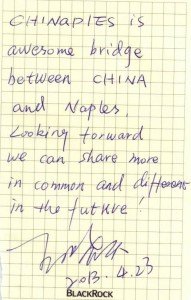 CHINAPLES is
awesome bridge
between CHINA
and Naples,
Looking forward
we can share more
in common and different
in the future!
2013.4.23
BLACKROCK